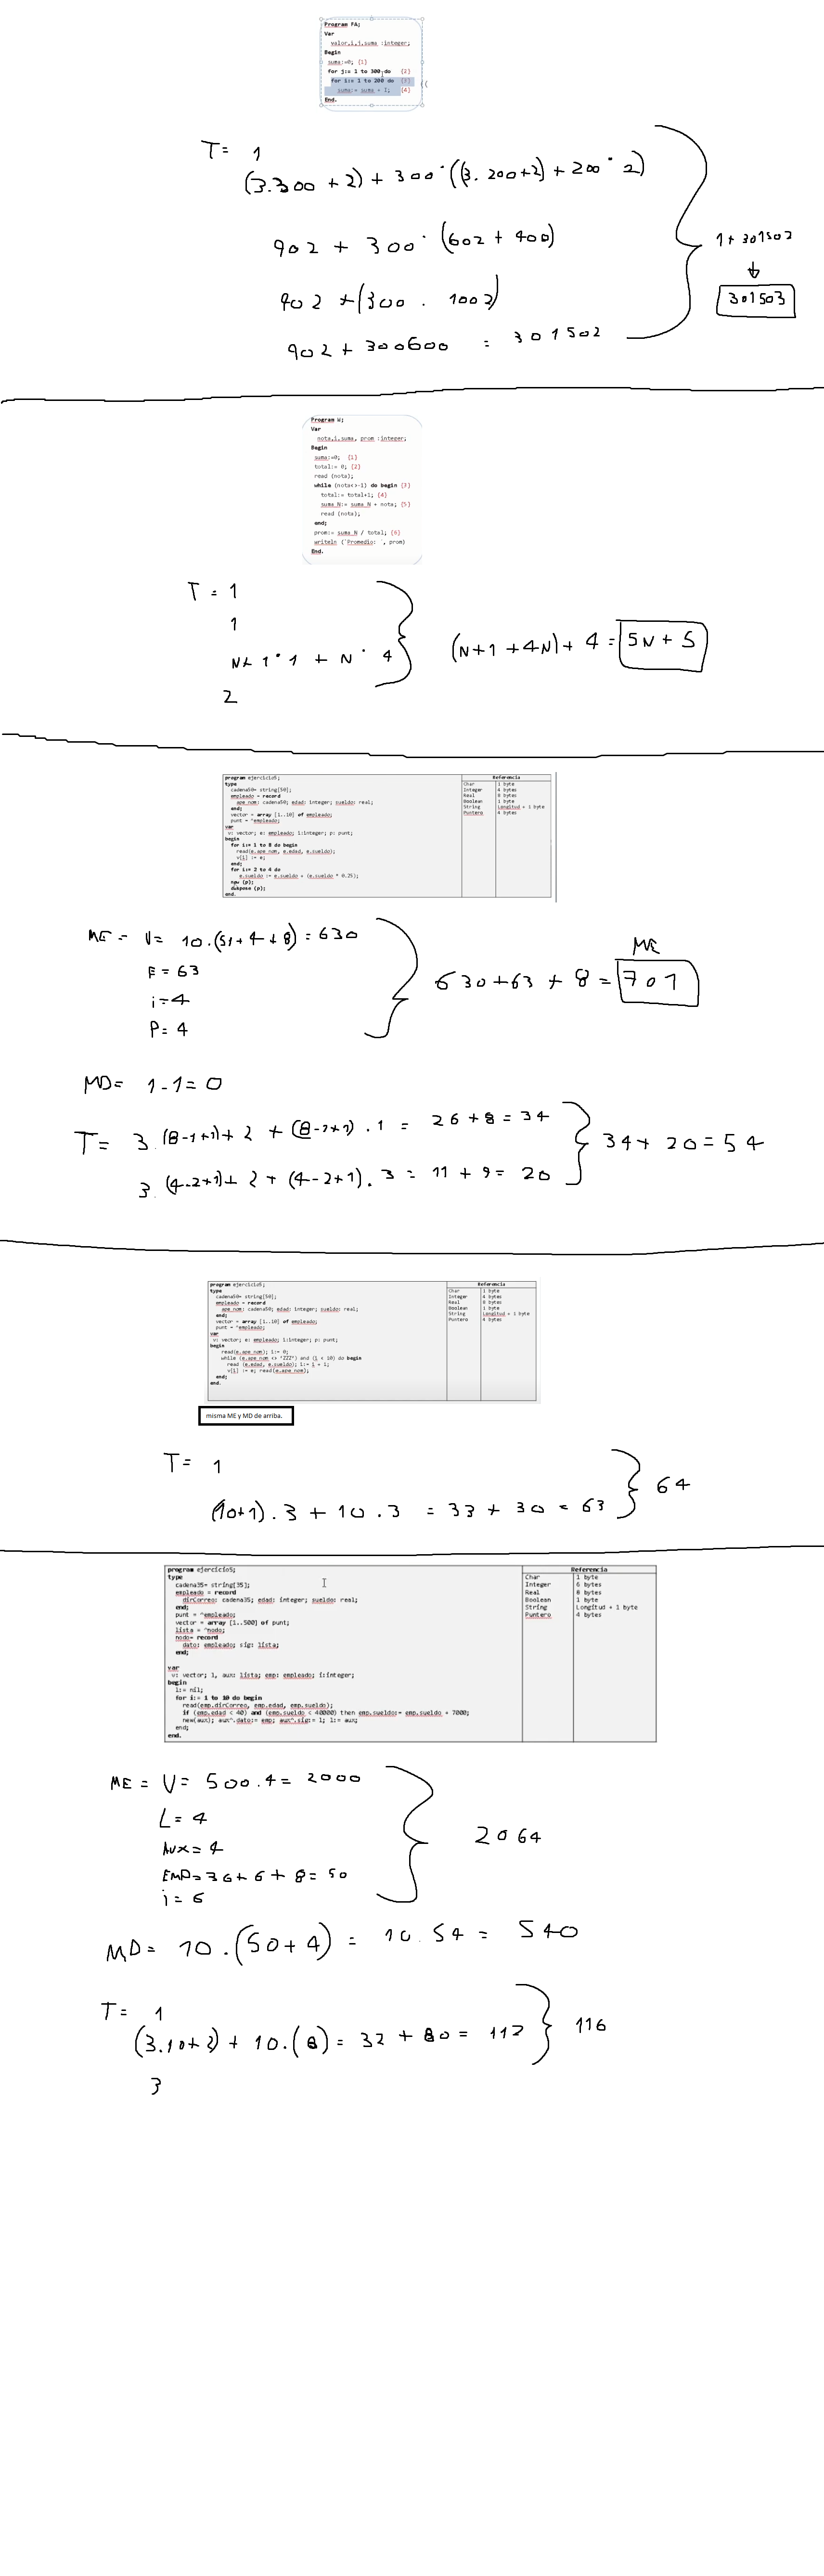 Program FA;
Var
valor,i,j,suma :integer;
Begin
suma:=0; {1}
for j:= 1 to 300 do {2}
for i:= 1 to 200 do {3}
suma:= suma + 1; {4}
End.
T= 1
(3.300 + 2) + 300 · ((3. 200+2) + 200 · 2)
902 + 300 · (602 + 400)
902 + (300 . 1002)
902 + 300600 = 301502
1 + 301502
↓
301503
Program W;
Var
nota,i,suma, prom :integer;
Begin
suma:=0; {1}
total:= 0; {2}
read (nota);
while (nota<>-1) do begin {3}
total:= total+1; {4}
suma_N:= suma_N + nota; {5}
read (nota);
end;
prom:= suma_N / total; {6}
writeln ('Promedio: ', prom)
End.
T = 1
1
N+1 · 1 + N · 4
2
(N+1 +4N) + 4 = 5N + 5
program ejercicio5;
type
cadena50= string[50];
empleado = record
ape_nom: cadena50; edad: integer; sueldo: real;
end;
vector = array [1..10] of empleado;
punt = ^empleado;
var
v: vector; e: empleado; i:integer; p: punt;
begin
for i:= 1 to 8 do begin
read(e.ape_nom, e.edad, e.sueldo);
v[i] := e;
end;
for i:= 2 to 4 do
e.sueldo := e.sueldo + (e.sueldo * 0.25);
new (p);
dispose (p);
end.
Referencia
Char 1 byte
Integer 4 bytes
Real 8 bytes
Boolean 1 byte
String Longitud + 1 byte
Puntero 4 bytes
ME = V= 10.(51+4+8) = 630
E = 63
i=4
P= 4
630+63 + 8 = 701
ME
MD= 1-1=0
T= 3.(8-1+1)+2 + (8-1+1) . 1 = 26+8=34
3.(4-2+1)+ 2 + (4-2+1). 3 = 11 + 9= 20
34+ 20=54
program ejercicio5;
type
cadena50= string[50];
empleado = record
ape_nom: cadena50; edad: integer; sueldo: real;
end;
vector = array [1..10] of empleado;
punt = ^empleado;
var
v: vector; e: empleado; i:integer; p: punt;
begin
read(e.ape_nom); i:= 0;
while (e.ape_nom <> 'ZZZ') and (i < 10) do begin
read (e.edad, e.sueldo); i:= i + 1;
v[i] := e; read(e.ape_nom);
end;
end.
Referencia
Char 1 byte
Integer 4 bytes
Real 8 bytes
Boolean 1 byte
String Longitud + 1 byte
Puntero 4 bytes
misma ME y MD de arriba.
T= 1
(10+1).3 + 10.3 = 33 + 30 = 63
64
program ejercicio5;
type
cadena35= string[35];
empleado = record
dirCorreo: cadena35; edad: integer; sueldo: real;
end;
punt = ^empleado;
vector = array [1..500] of punt;
lista = ^nodo;
nodo= record
dato: empleado; sig: lista;
end;
var
v: vector; l, aux: lista; emp: empleado; i:integer;
begin
l:= nil;
for i:= 1 to 10 do begin
read(emp.dirCorreo, emp.edad, emp.sueldo);
if (emp.edad < 40) and (emp.sueldo < 40000) then emp.sueldo:= emp.sueldo + 7000;
new(aux); aux^.dato:= emp; aux^.sig:= l; l:= aux;
end;
end.
Referencia
Char 1 byte
Integer 6 bytes
Real 8 bytes
Boolean 1 byte
String Longitud + 1 byte
Puntero 4 bytes
ME = V= 500.4= 2000
L=4
AUX=4
EMP=36+6+8=50
i=6
2064
MD= 10.(50+4) = 10.54 = 540
T= 1
(3.10+2) + 10.(8) = 32 + 80 = 112
3
116